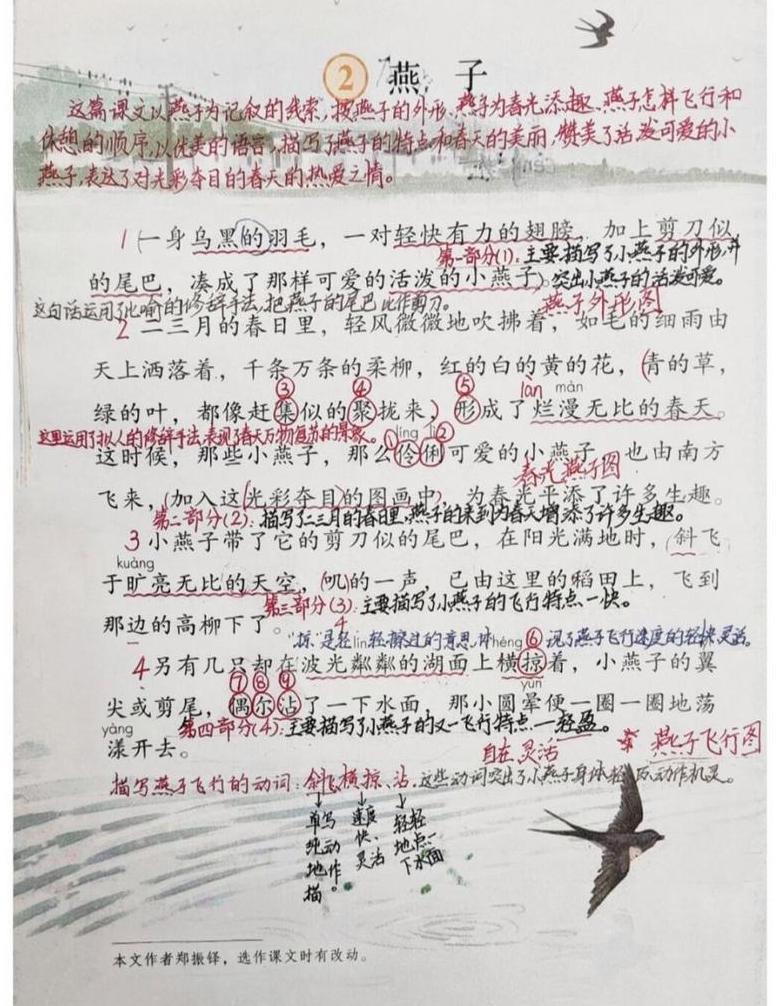 2 燕子
这篇课文以燕子为记叙的线索,按燕子的外形、燕子为春光添趣、燕子怎样飞行和
休憩的顺序,以优美的语言,描写了燕子的特点和春天的美丽,赞美了活泼可爱的小
燕子,表达了对光彩夺目的春天的热爱之情。
1 一身乌黑的羽毛,一对轻快有力的翅膀,加上剪刀似
第一部分(1):主要描写了小燕子的外形,并
的尾巴,凑成了那样可爱的活泼的小燕子。突出小燕子的活泼可爱。
这句话运用了比喻的修辞手法,把燕子的尾巴比作剪刀。 燕子外形图
2 二三月的春日里,轻风微微地吹拂着,如毛的细雨由
天上洒落着,千条万条的柔柳,红的白的黄的花,青的草,
③ ④ ⑤ lan màn
绿的叶,都像赶集似的聚拢来,形成了烂漫无比的春天。
这里运用了拟人的修辞手法,表现了春天万物复苏的景象。 ① líng lì ②
这时候,那些小燕子,那么伶俐可爱的小燕子,也由南方
春光燕子图
飞来,加入这光彩夺目的图画中,为春光平添了许多生趣。
第二部分(2):描写了二三月的春日里,燕子的来到为春天增添了许多生趣。
3 小燕子带了它的剪刀似的尾巴,在阳光满地时,斜飞
kuàng
于旷亮无比的天空,叽的一声,已由这里的稻田上,飞到
第三部分(3):主要描写了小燕子的飞行特点一快。
那边的高柳下了。
"掠"是轻轻擦过的意思,体 lín héng ⑥ 现了燕子飞行速度的轻快、灵活。
4 另有几只却在波光粼粼的湖面上横掠着,小燕子的翼
⑦ ⑧ ⑨ yùn
尖或剪尾,偶尔沾了一下水面,那小圆晕便一圈一圈地荡
yàng 第四部分(4):主要描写了小燕子的又一飞行特点一轻盈。
漾开去。
自在灵活 燕子飞行图
描写燕子飞行的动词:斜飞、横掠、沾,这些动词突出了小燕子身体轻 动作机灵。
单纯地描写动作。
速度快、灵活
轻轻地点一下水面
本文作者郑振铎,选作课文时有改动。